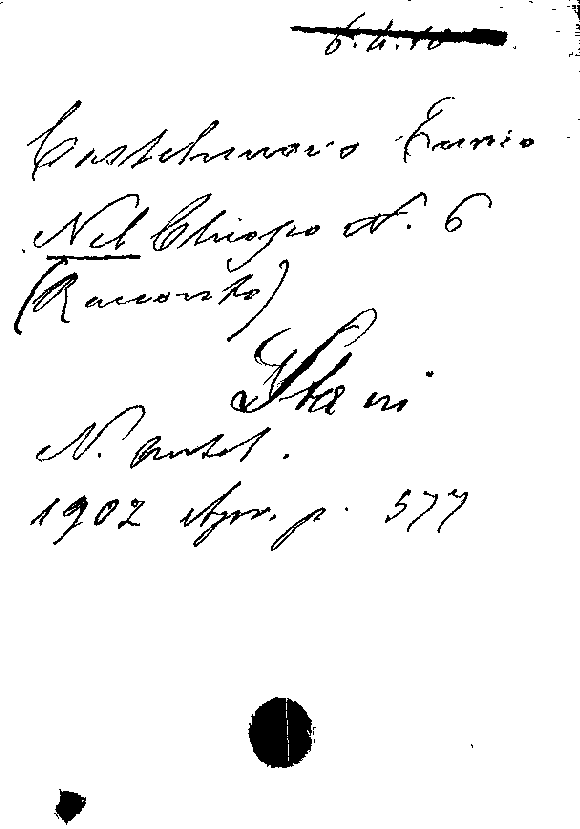 6.4.10
Castelnuovo Enrico
Nel Chiosco N. 6
(Racconto)
N. Antol.
1902 Apr. p. 577